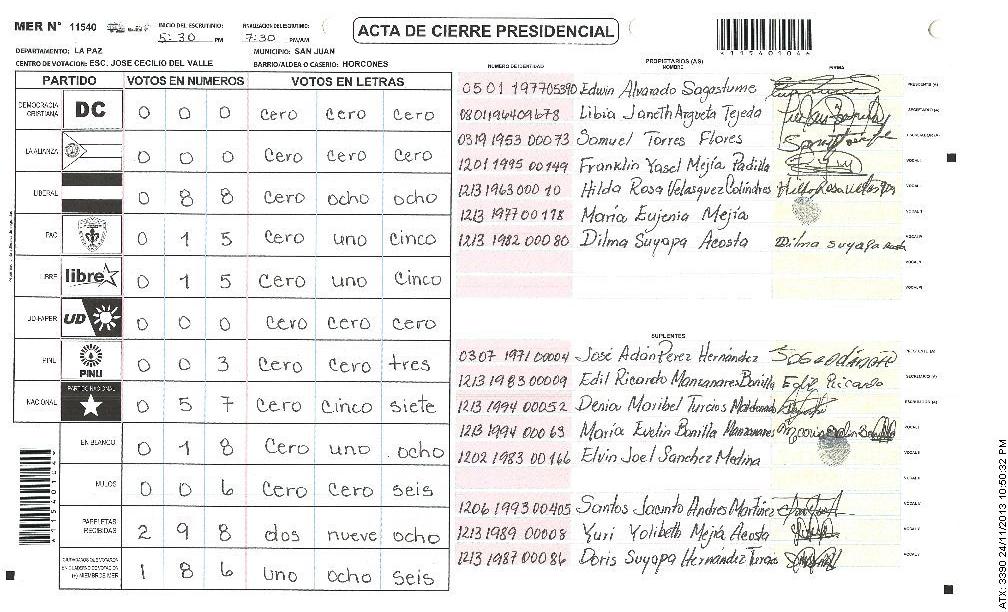 MER N° 11540
INICIO DEL ESCRUTINIO: 5:30 PM
FINALIZACION DEL ESCRUTINIO: 7:30 PM/AM
ACTA DE CIERRE PRESIDENCIAL
*11540104*
DEPARTAMENTO: LA PAZ
MUNICIPIO: SAN JUAN
CENTRO DE VOTACION: ESC. JOSE CECILIO DEL VALLE
BARRIO/ALDEA O CASERIO: HORCONES
PARTIDO VOTOS EN NUMEROS VOTOS EN LETRAS
DEMOCRACIA CRISTIANA DC 0 0 0 cero cero cero
LA ALIANZA 0 0 0 cero cero cero
LIBERAL 0 8 8 cero ocho ocho
PAC 0 1 5 cero uno cinco
LIBRE libre 0 1 5 Cero uno Cinco
UD-FAPER UD 0 0 0 Cero Cero cero
PINU PINU 0 0 3 Cero Cero tres
NACIONAL PARTIDO NACIONAL 0 5 7 Cero Cinco siete
EN BLANCO 0 1 8 Cero uno ocho
NULOS 0 0 6 Cero Cero seis
PAPELETAS RECIBIDAS 2 9 8 dos nueve ocho
1 8 6 uno ocho seis
NUMERO DE IDENTIDAD
PROPIETARIOS (AS)
NOMBRE
FIRMA
0501 197705390 Edwin Alvarado Sagastume PRESIDENTE (A)
0801196409678 Libia Janeth Argueta Tejeda SECRETARIO (A)
0319 1953 00073 Samuel Torres Flores ESCRUTADOR (A)
1201 1995 00149 Franklin Yasel Mejía Padilla
1213 1963 000 10 Hilda Rosa Velasquez Calindres
1213 1977 00118 María Eujenia Mejía
1213 1982 000 80 Dilma Suyapa Acosta Dilma Suyapa
SUPLENTES
0307 1971 00004 José Adán Perez Hernández PRESIDENTE (A)
1213 1983 00009 Edil Ricardo Manzanares Bonilla Edil Ricardo SECRETARIO (A)
1213 1994 00052 Denia Maribel Turcios Maldonado ESCRUTADOR (A)
1213 1994 000 63 María Evelin Bonilla Manzanares
1202 1983 00166 Elvin Joel Sanchez Medina
1206 1993 00405 Santos Jacinto Andres Martinez
1213 1989 00008 Yuri Yolibeth Mejía Acosta
1213 1987 000 86 Doris Suyapa Hernández Turcios
ATX: 3390 24/11/2013 10:50:32 PM